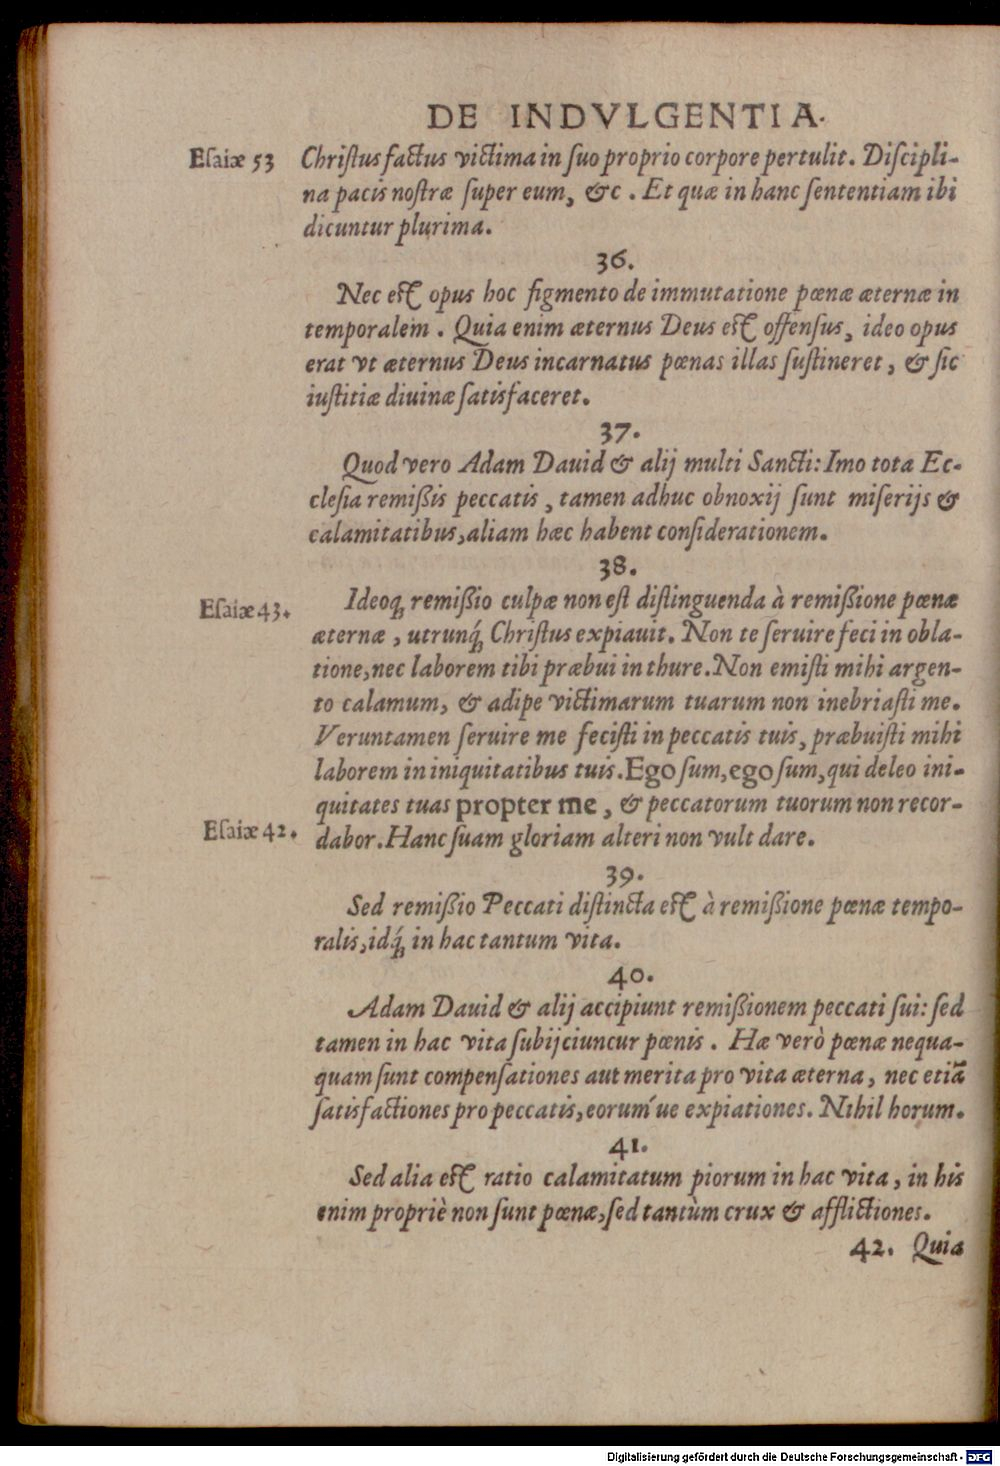 DE INDVLGENTIA.
Eſaiæ 53 Chriſtus factus victima in ſuo proprio corpore pertulit. Diſcipli-
na pacis noſtræ ſuper eum, &c. Et quæ in hanc ſententiam ibi
dicuntur plurima.
36.
Nec eſt opus hoc figmento de immutatione pœnæ æternæ in
temporalem. Quia enim æternus Deus eſt offenſus, ideo opus
erat vt æternus Deus incarnatus pœnas illas ſuſtineret, & ſic
iuſtitiæ diuinæ ſatisfaceret.
37.
Quod vero Adam Dauid & alij multi Sancti: Imo tota Ec-
cleſia remiſßis peccatis, tamen adhuc obnoxij ſunt miſerijs &
calamitatibus, aliam hæc habent conſiderationem.
38.
Eſaiæ 43. Ideoq́; remißio culpæ non eſt diſtinguenda à remißione pœnæ
æternæ, utrunq́; Chriſtus expiauit. Non te ſeruire feci in obla-
tione, nec laborem tibi præbui in thure. Non emiſti mihi argen-
to calamum, & adipe victimarum tuarum non inebriaſti me.
Veruntamen ſeruire me feciſti in peccatis tuis, præbuiſti mihi
laborem in iniquitatibus tuis. Ego ſum, ego ſum, qui deleo ini-
quitates tuas propter me, & peccatorum tuorum non recor-
Eſaiæ 42. dabor. Hanc ſuam gloriam alteri non vult dare.
39.
Sed remißio Peccati diſtincta eſt à remißione pœnæ tempo-
ralis, idq́; in hac tantum vita.
40.
Adam Dauid & alij accipiunt remißionem peccati ſui: ſed
tamen in hac vita ſubijciuncur pœnis. Hæ verò pœnæ nequa-
quam ſunt compenſationes aut merita pro vita æterna, nec etiã
ſatisfactiones pro peccatis, eoruḿue expiationes. Nihil horum.
41.
Sed alia eſt ratio calamitatum piorum in hac vita, in his
enim propriè non ſunt pœnæ, ſed tantùm crux & afflictiones.
42. Quia
Digitalisierung gefördert durch die Deutsche Forschungsgemeinschaft - DFG